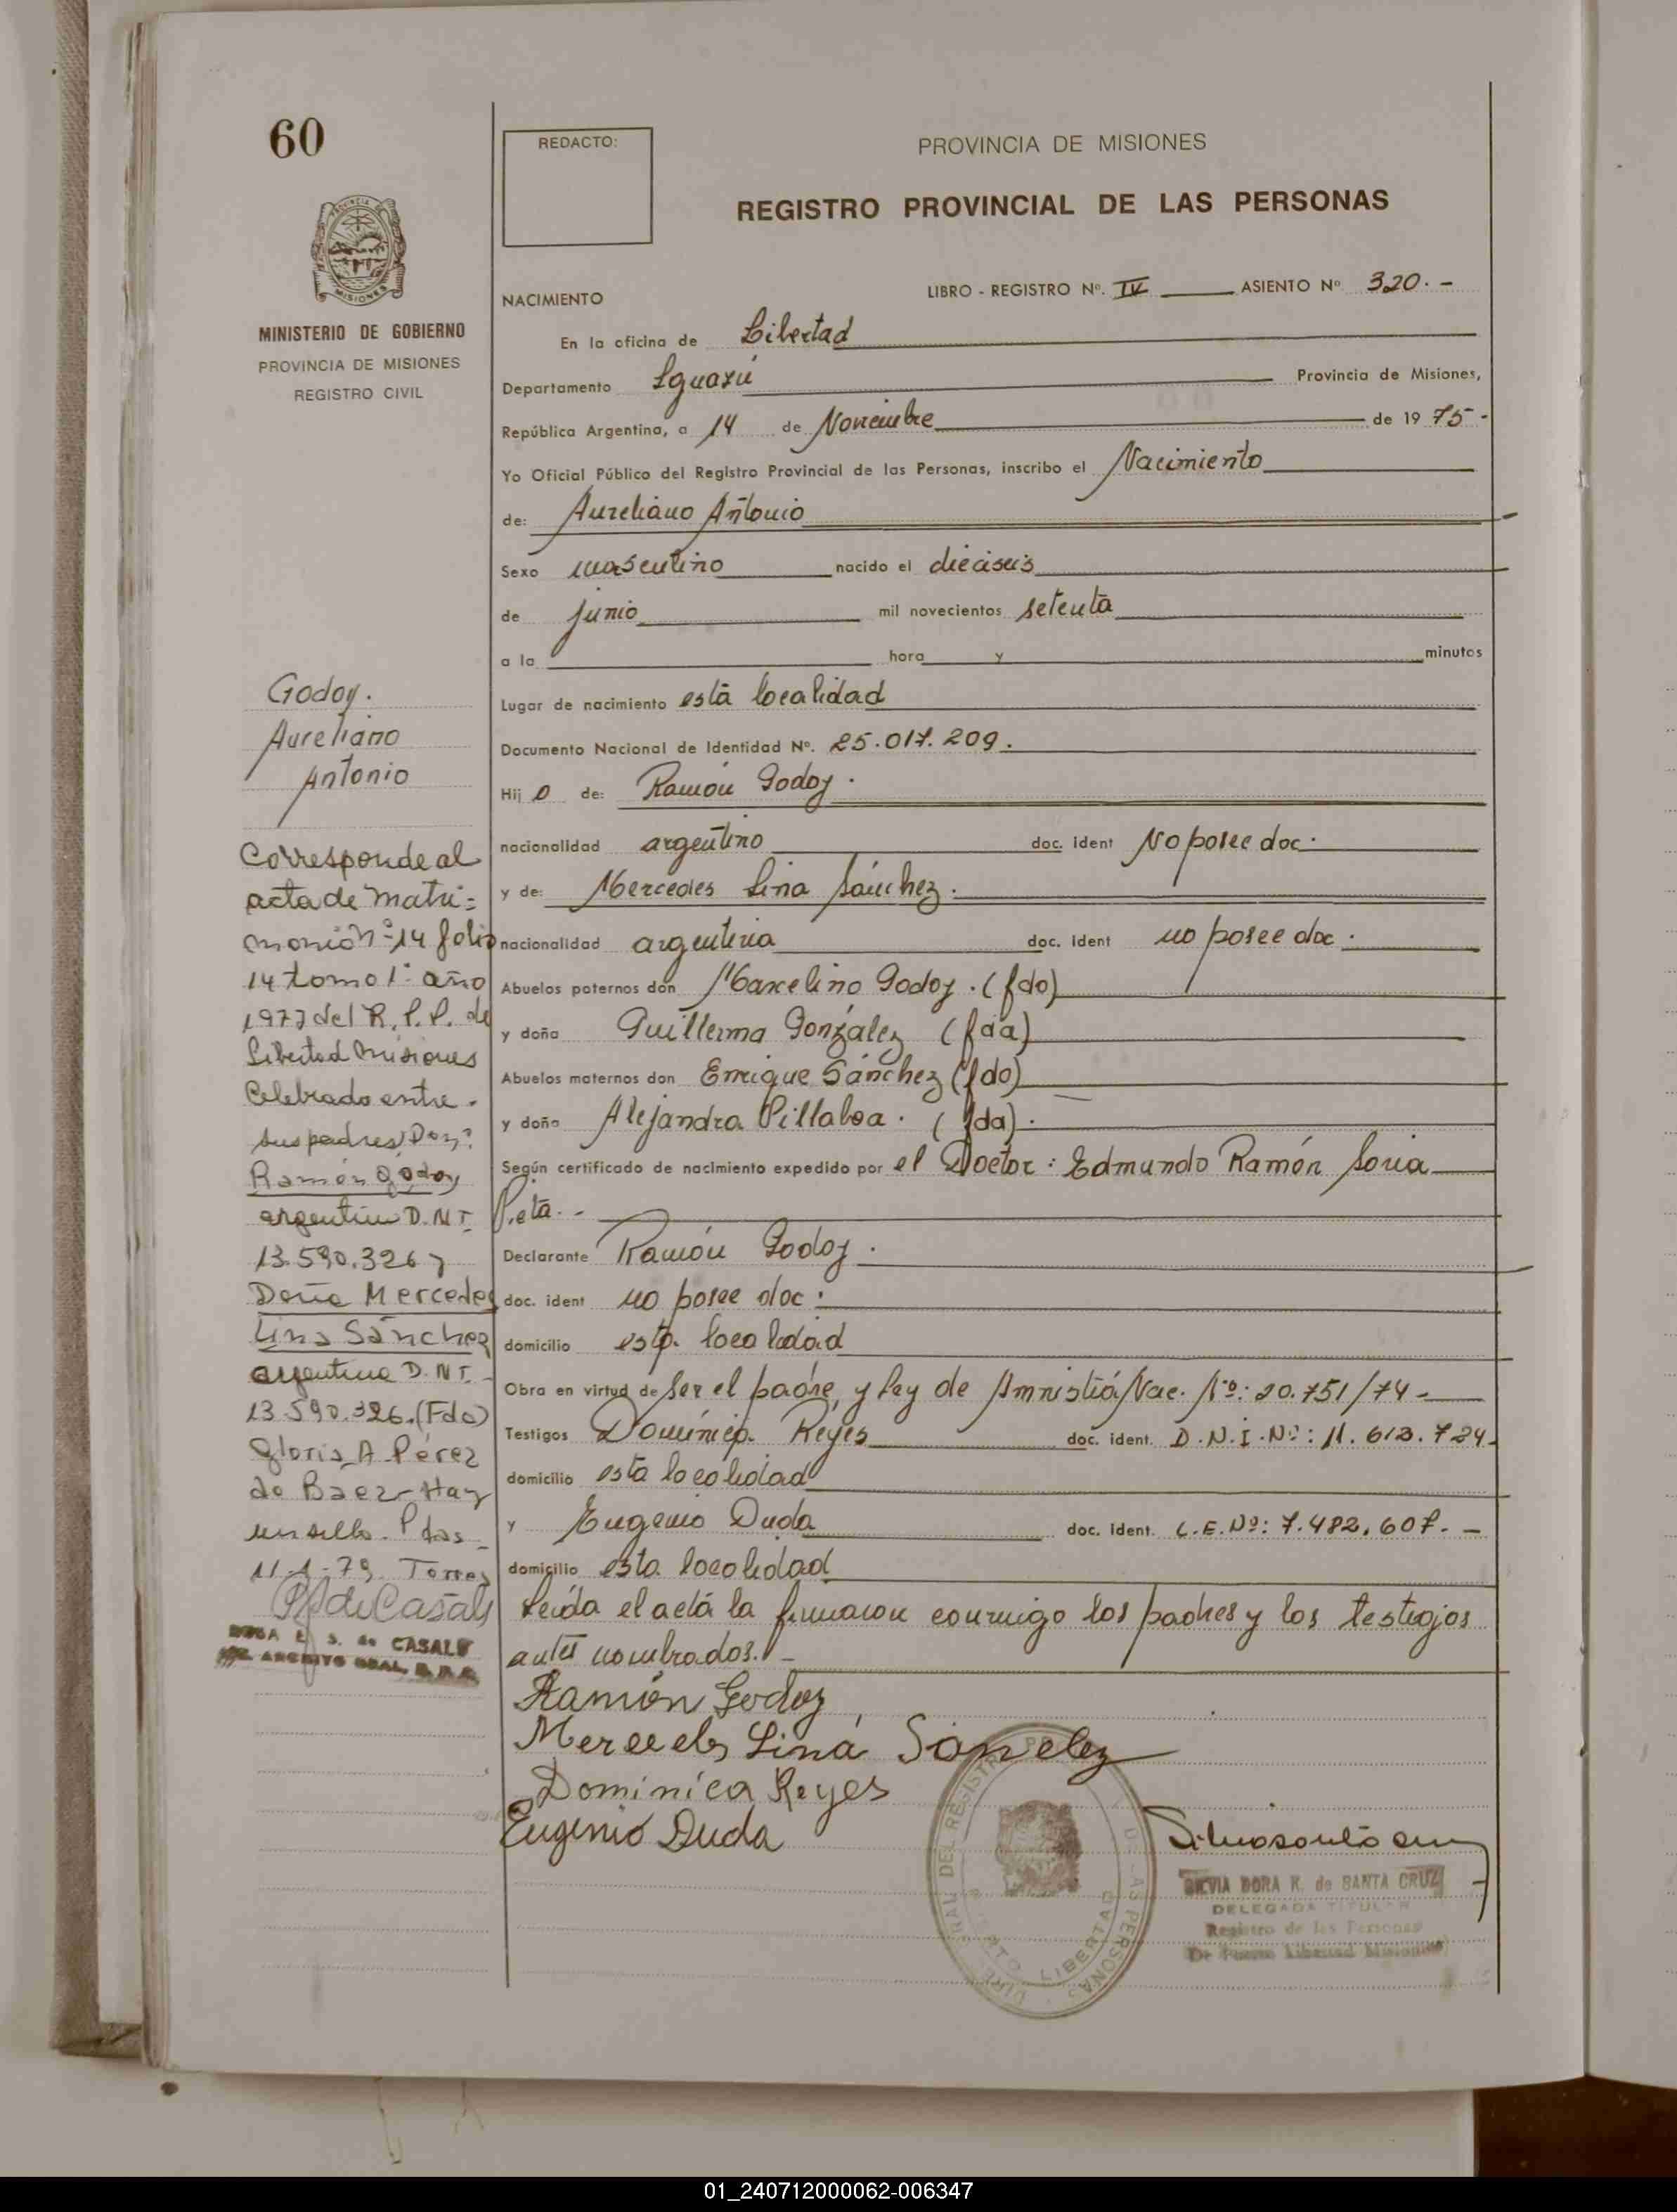 60
REDACTO:
PROVINCIA DE MISIONES
REGISTRO PROVINCIAL DE LAS PERSONAS
MISIONES
MINISTERIO DE GOBIERNO
PROVINCIA DE MISIONES
REGISTRO CIVIL
NACIMIENTO
LIBRO - REGISTRO Nº. IV ASIENTO Nº 320.-
En la oficina de Libertad
Departamento Iguazú Provincia de Misiones,
República Argentina, a 14 de Noviembre de 19 75-
Yo Oficial Público del Registro Provincial de las Personas, inscribo el Nacimiento
de: Aureliano Antonio
Sexo masculino nacido el dieciseis
de junio mil novecientos setenta
a la hora y minutos
Lugar de nacimiento esta localidad
Documento Nacional de Identidad Nº. 25.017.209.
Hij o de: Ramón Godoy.
nacionalidad argentino doc. ident No posee doc.
y de: Mercedes Lina Sánchez.
nacionalidad argentina doc. ident no posee doc.
Abuelos paternos don Marcelino Godoy. (fdo)
y doña Guillerma González (fda)
Abuelos maternos don Enrique Sánchez (fdo)
y doña Alejandra Villaboa. (fda).
Según certificado de nacimiento expedido por el Doctor: Edmundo Ramón Soria
Pieta.-
Declarante Ramón Godoy.
doc. ident no posee doc.
domicilio esta localidad
Obra en virtud de ser el padre y Ley de Amnistía Nac. Nº: 20.751/74-
Testigos Dominica Reyes doc. ident. D.N.I.Nº: 11.613.724.
domicilio esta localidad
y Eugenio Duda doc. ident. L.E.Nº: 7.482.607.-
domicilio esta localidad
Leída el acta la firmaron conmigo los padres y los testigos
antes nombrados.-
Ramón Godoy
Mercedes Lina Sanchez
Dominica Reyes
Eugenio Duda
SILVIA DORA K. de SANTA CRUZ
DELEGADA TITULAR
Registro de las Personas
De Puerto Libertad Misiones
LIBERTAD
Godoy.
Aureliano
Antonio
Corresponde al
acta de matri=
monio nº 14 folio
14 tomo 1º año
1977 del R.P.P. de
Libertad Misiones
Celebrado entre.
sus padres Don:
Ramón Godoy
argentino D.N.I.
13.590.326 y
Doña Mercedes
Lina Sánchez
argentina D.N.I.
13.590.326.(Fdo)
Gloria A Pérez
de Baez-Hay
un sello. Pdas-
11-1-79. Torres
R A de Casals
ROSA E. S. de CASALS
ARCHIVO GRAL. R.P.P.
01_240712000062-006347